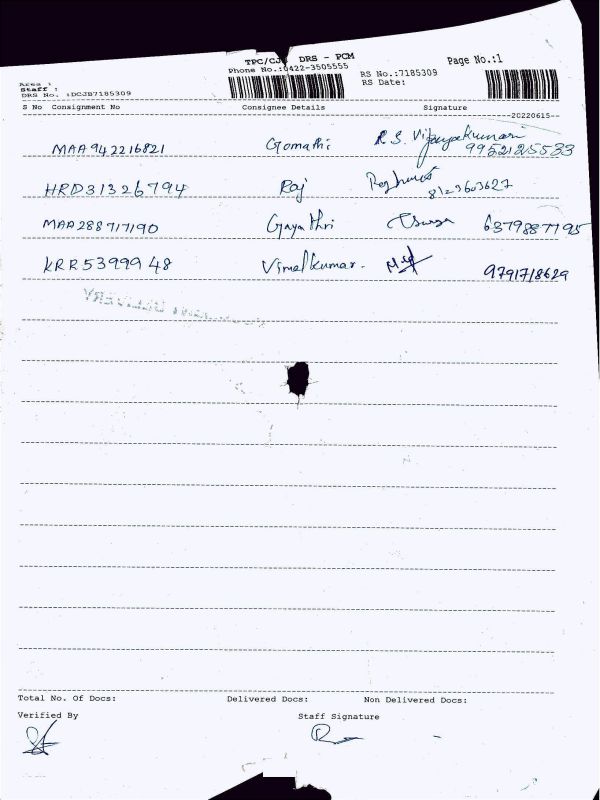 TPC/CJB DRS - PCM
Phone No.:0422-3505555
Page No.:1
RS No.:7185309
RS Date:
Area :
Staff :
DRS No. :DCJB7185309
S No Consignment No Consignee Details Signature
--20220615--
MAA942216821 Gomathi R.S. Vijayakumari
9952125533
HRD31326794 Raj
8123603627
MAA288717190 Gayathri 6379887195
KRR5399948 Vimalkumar. 9791718629
Total No. Of Docs: Delivered Docs: Non Delivered Docs:
Verified By Staff Signature